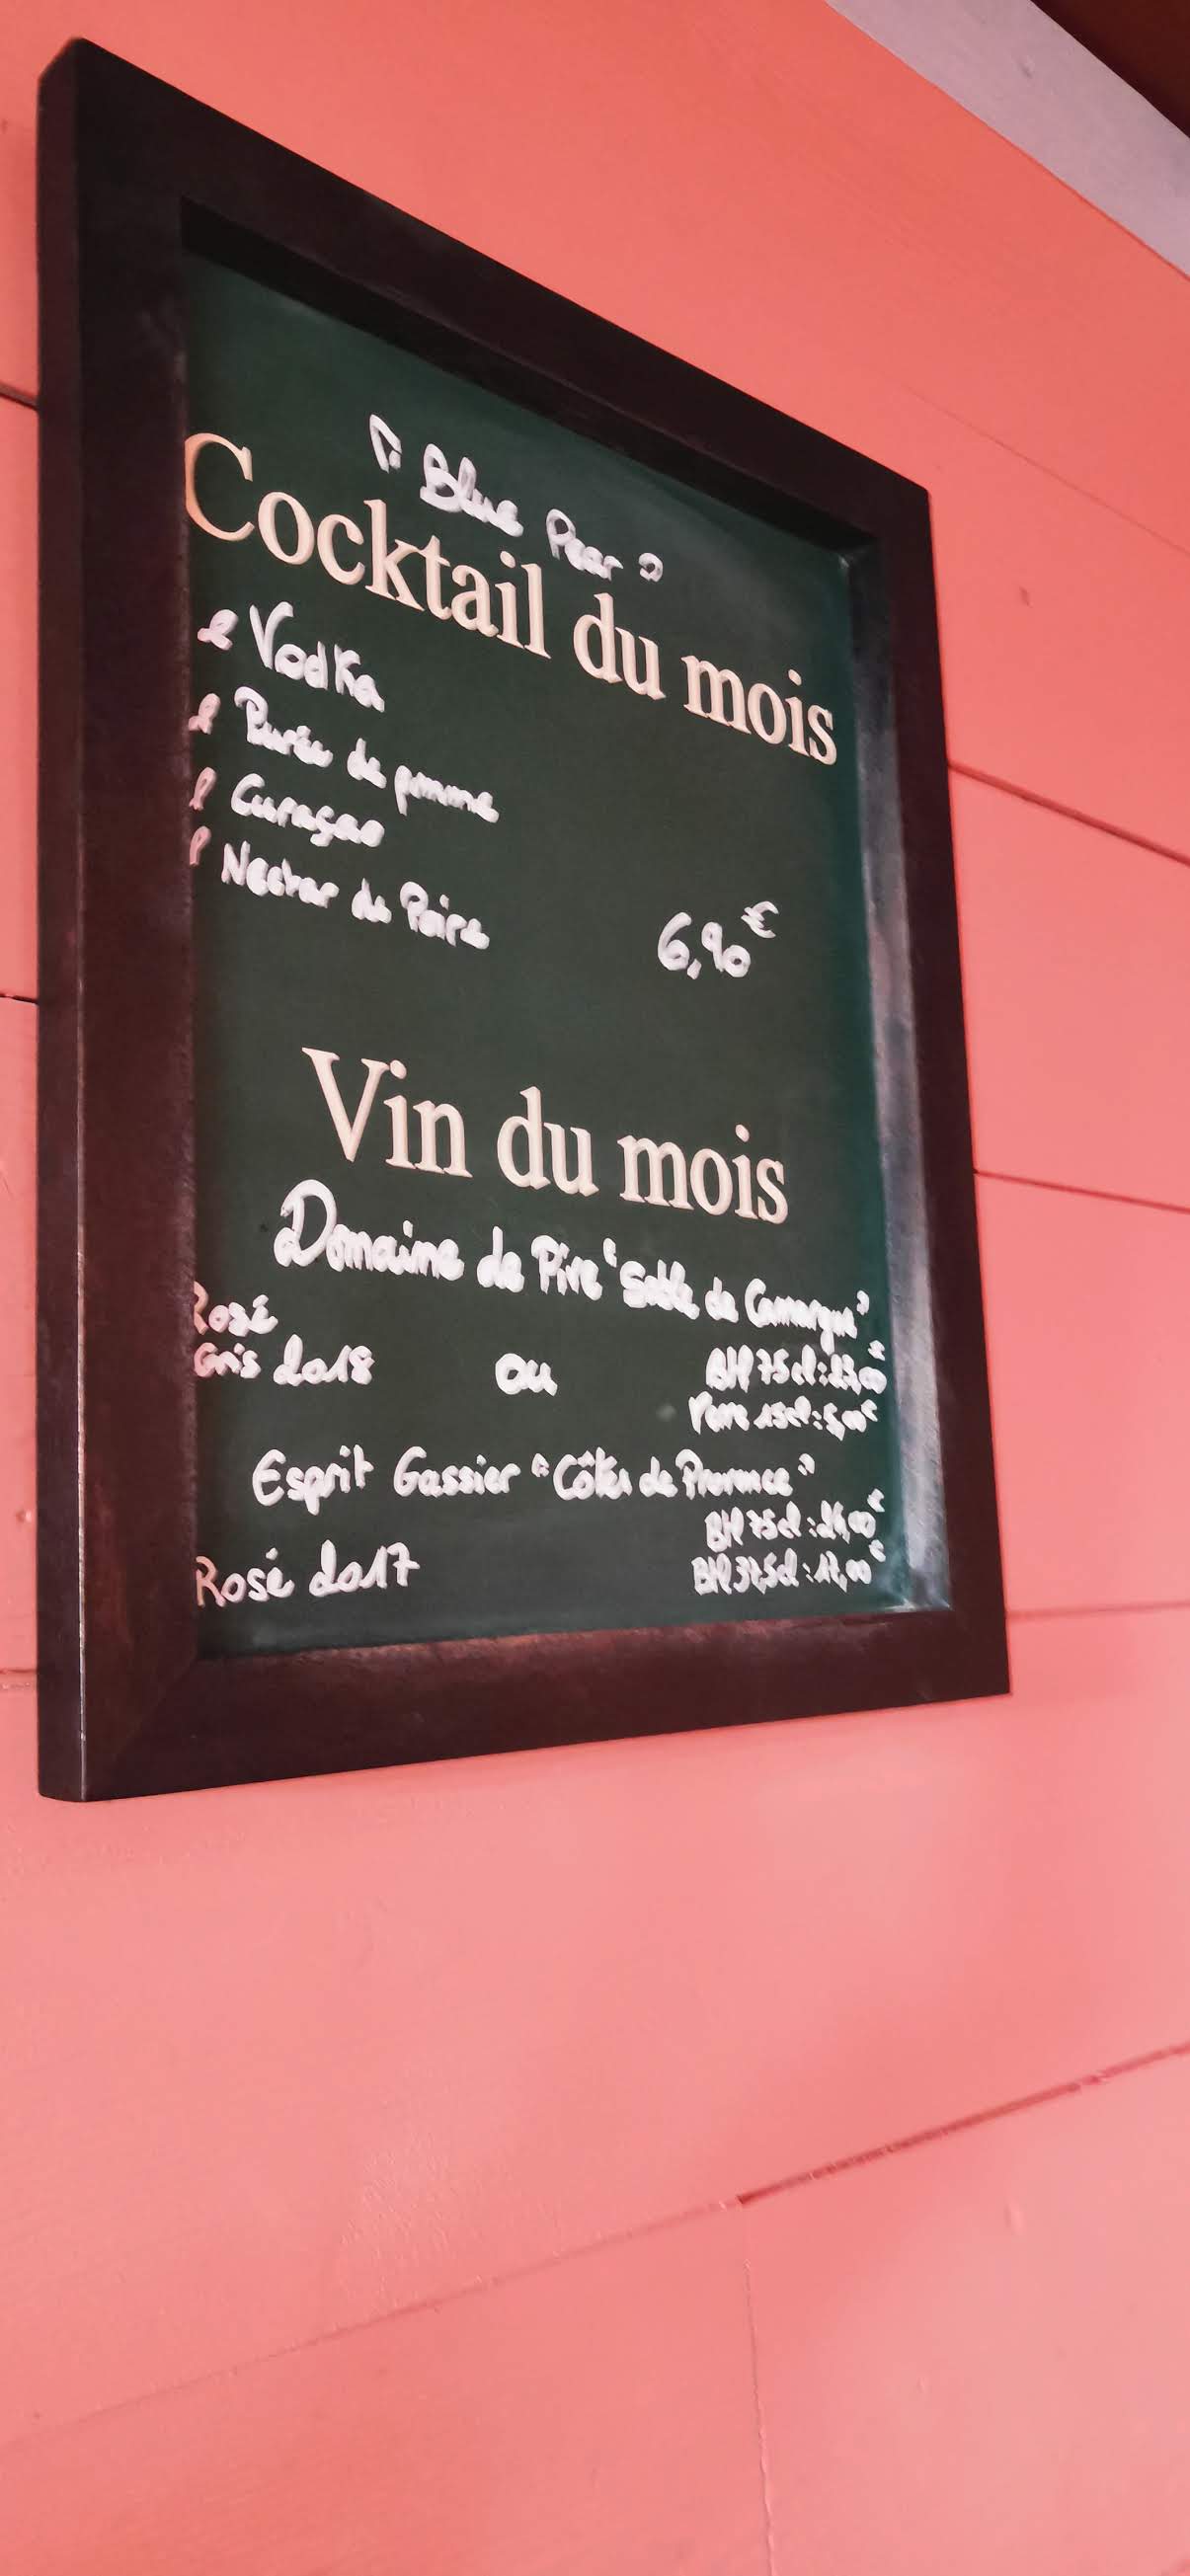 " Blue Pear "
Cocktail du mois
Vodka
Purée de pomme
Curaçao
Nectar de Poire
6,90€
Vin du mois
Domaine de Pive "Sable de Camargue"
Rosé
Gris 2018 ou Btl 75cl : 23,00€
Verre 15cl : 5,00€
Esprit Gassier "Côtes de Provence"
Btl 75cl : 26,00€
Rosé 2017 Btl 37,5cl :